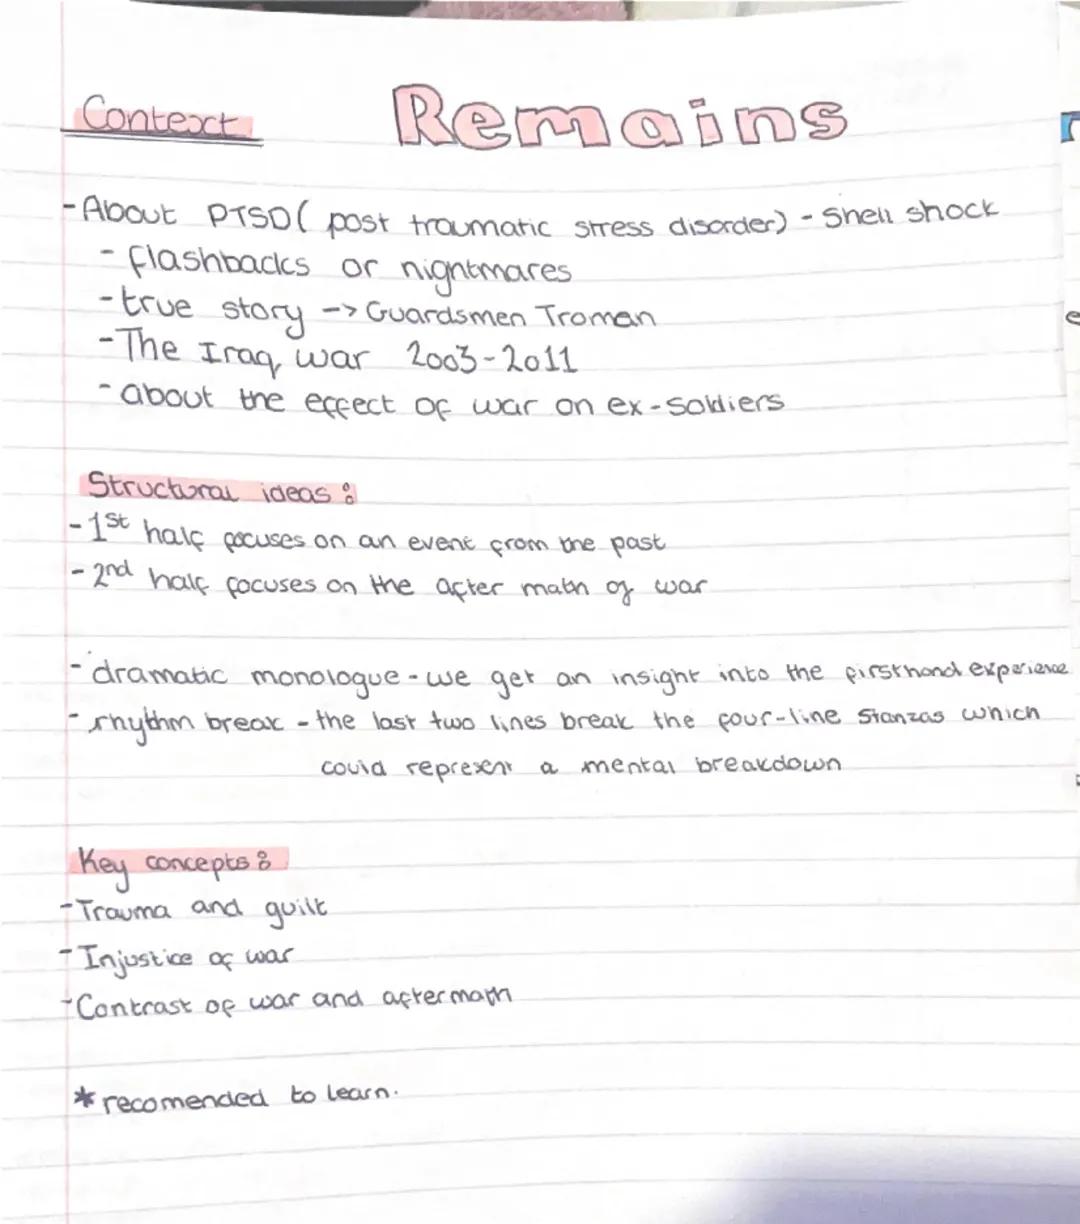 Context Remains
- About PTSD ( post traumatic stress disorder) - Shell shock
- flashbacks or nightmares
- true story -> Guardsmen Troman
- The Iraq war 2003-2011
- about the effect of war on ex-soldiers
Structural ideas:
- 1st half focuses on an event from the past
- 2nd half focuses on the after math of war
- dramatic monologue - we get an insight into the firsthand experience
- rhythm break - the last two lines break the four-line stanzas which
could represent a mental breakdown
Key concepts:
- Trauma and guilt
- Injustice of war
- Contrast of war and aftermath
* recomended to learn.